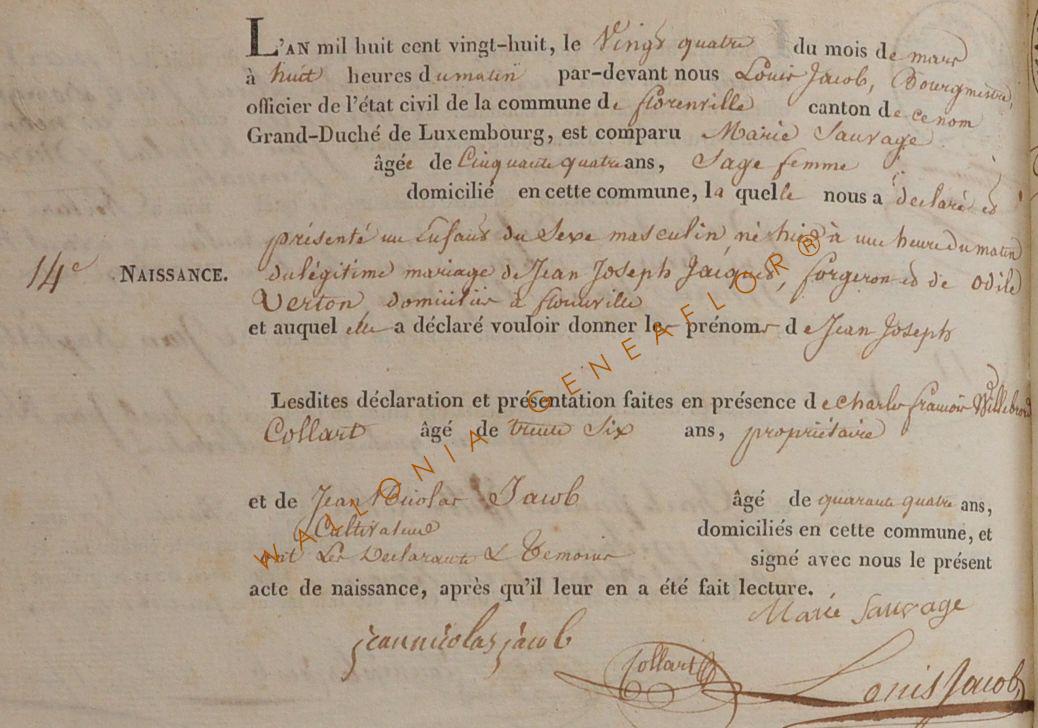 L'AN mil huit cent vingt-huit, le Vingt quatre du mois de mars
à huit heures du matin par-devant nous Louis Jacob, Bourgmestre,
officier de l'état civil de la commune de florenville canton de ce nom
Grand-Duché de Luxembourg, est comparu Marie Sauvage
âgée de Cinquante quatre ans, Sage femme
domicilié en cette commune, la quelle nous a déclaré et
présenté un Enfant du Sexe masculin né hier à une heure du matin
14e NAISSANCE. du légitime mariage de Jean Joseph Jacques, forgeron et de Odile
Verton domiciliés à florenville
et auquel elle a déclaré vouloir donner les prénoms de Jean Joseph
Lesdites déclaration et présentation faites en présence de Charles françois Willebrord
Collart âgé de trente Six ans, propriétaire
et de Jean Nicolas Jacob âgé de quarante quatre ans,
Cultivateur domiciliés en cette commune, et
ont Les Déclarante & Temoins signé avec nous le présent
acte de naissance, après qu'il leur en a été fait lecture.
Marie Sauvage
jean nicolas jacob
Collart
Louis Jacob
WALLONIA GENEAFLOR®